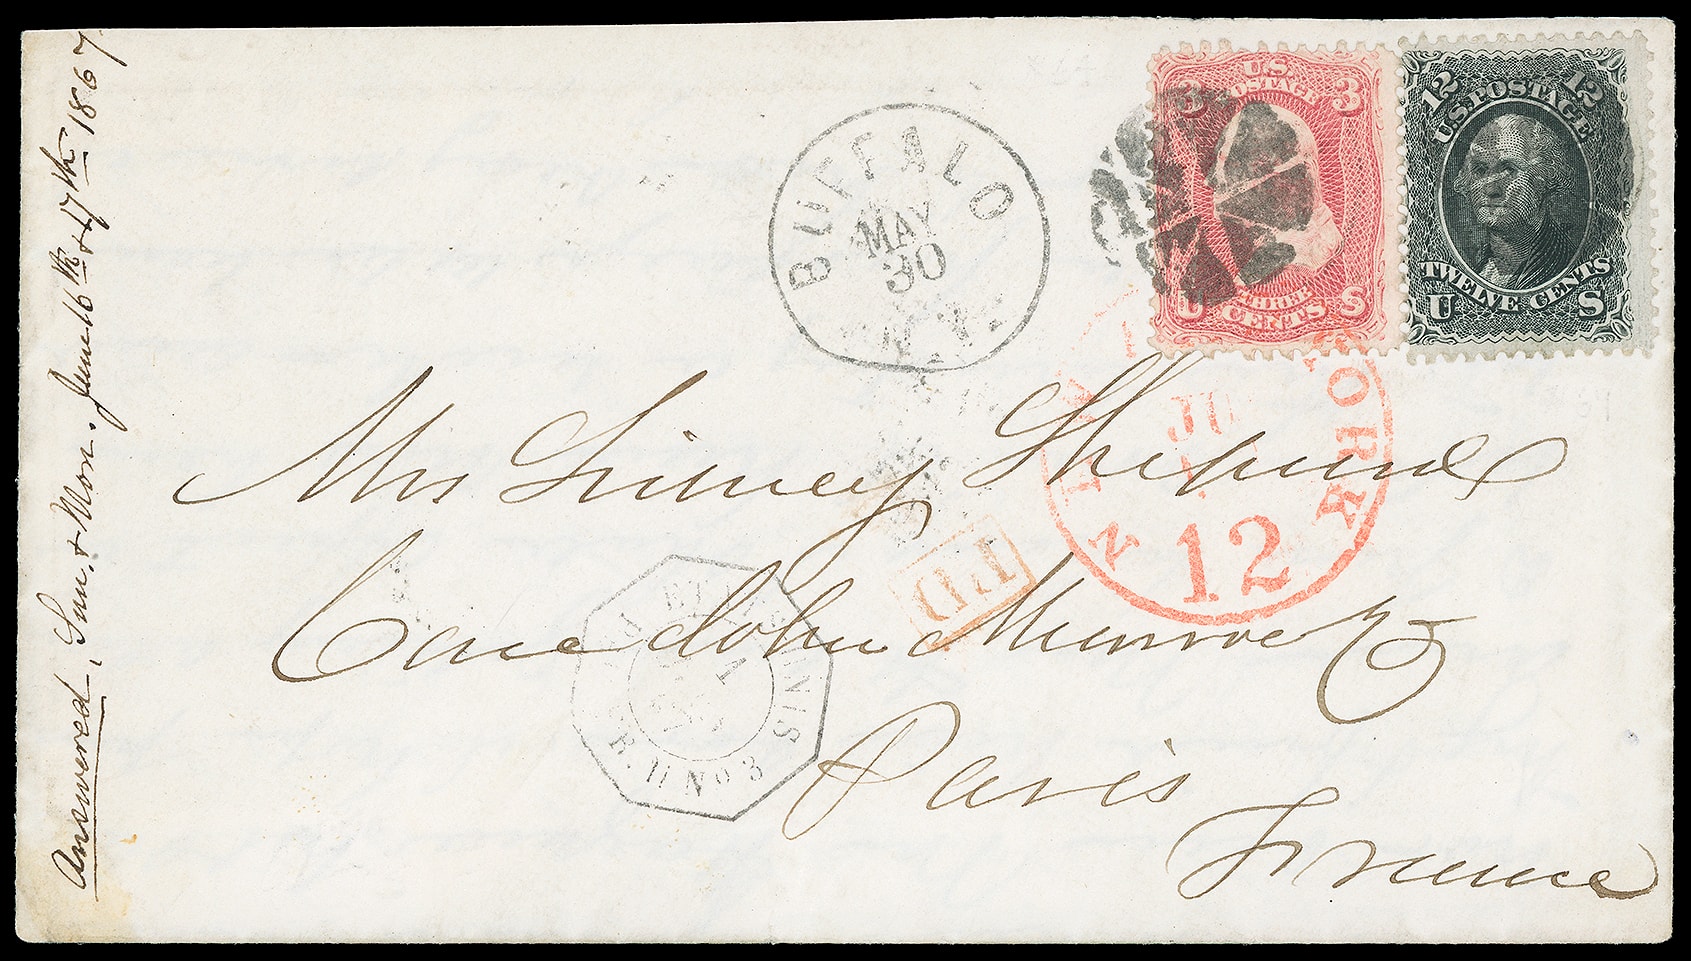 Answered, Sun. & Mon. June 16th & 17th 1867
BUFFALO
MAY
30
N.Y.
U.S.
POSTAGE
3 3
THREE
CENTS
U S
12 12
U.S. POSTAGE
TWELVE CENTS
U S
NEW YORK
JU
12
Mrs Sidney Shepard
PD
Care John Munroe &
ETATS UNIS
No 3
Paris
France